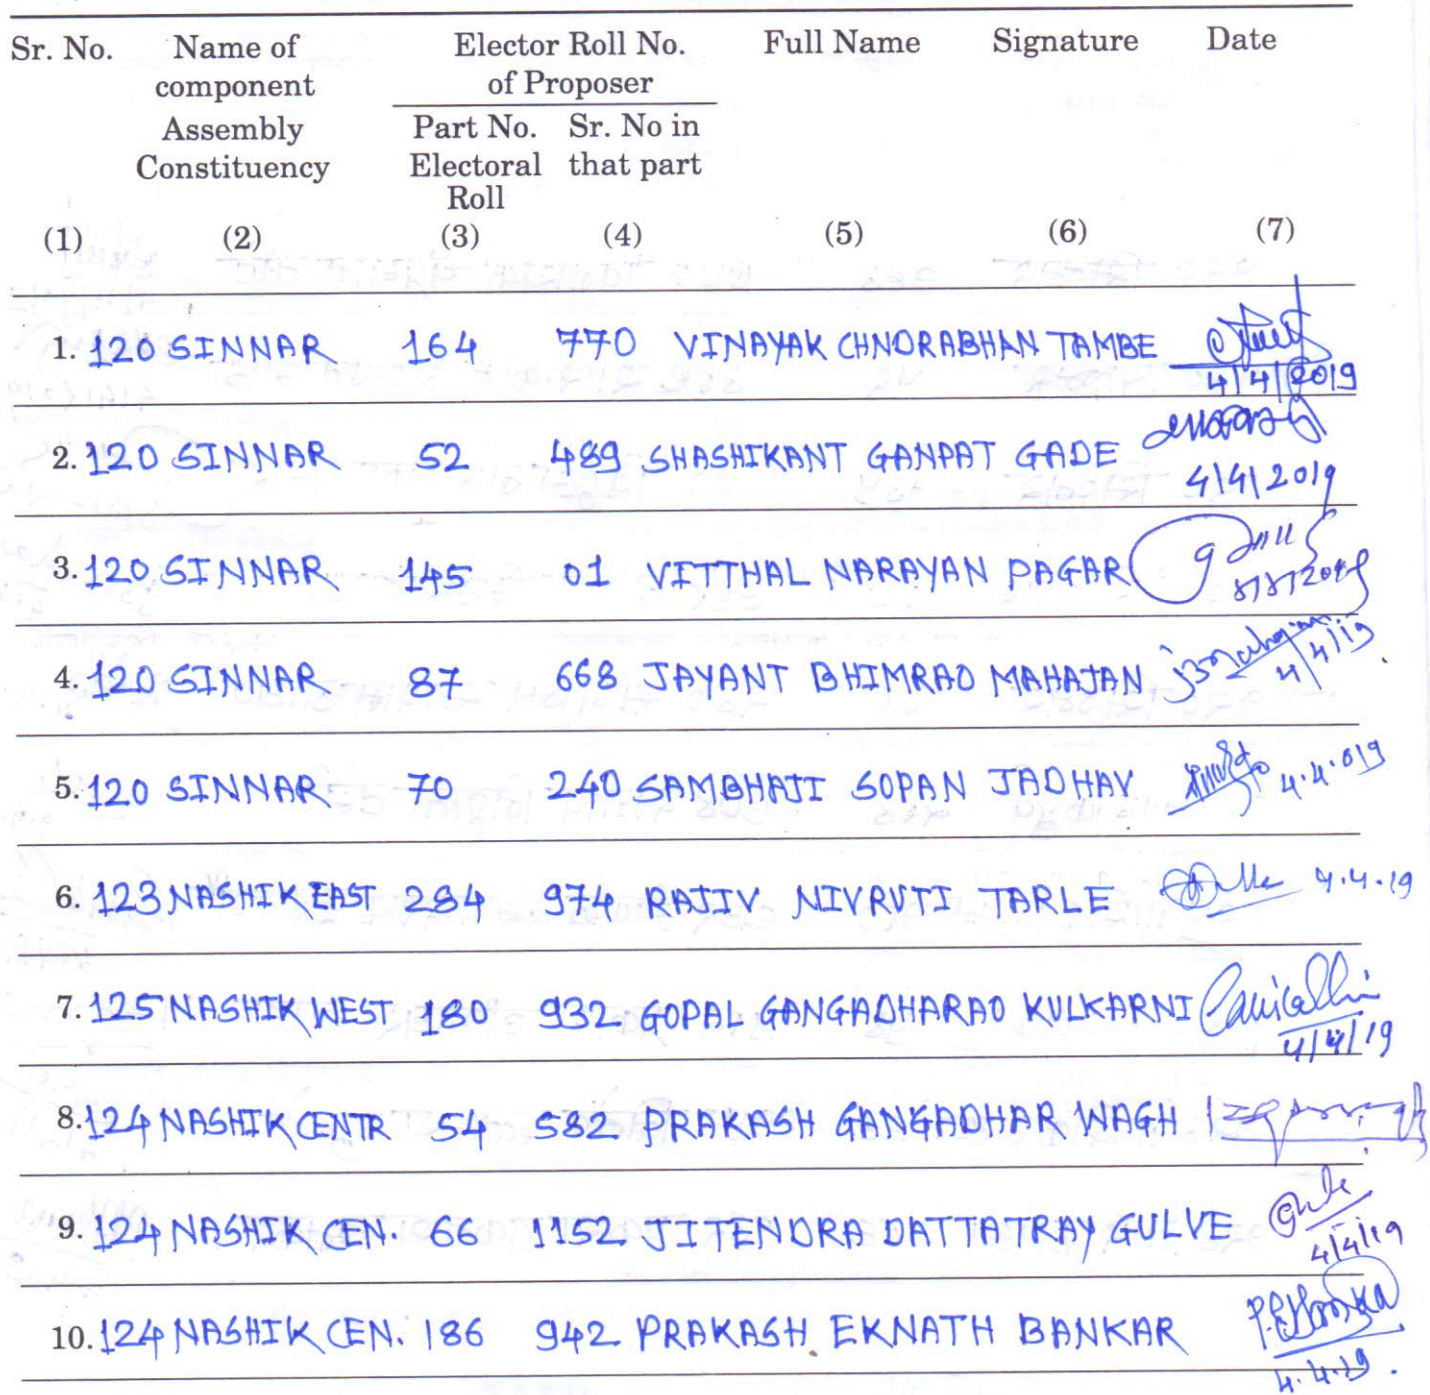 Sr. No. Name of Elector Roll No. Full Name Signature Date
component of Proposer
Assembly Part No. Sr. No in
Constituency Electoral that part
Roll
(1) (2) (3) (4) (5) (6) (7)
1. 120 SINNAR 164 770 VINAYAK CHNDRABHAN TAMBE
4/4/2019
2. 120 SINNAR 52 489 SHASHIKANT GANPAT GADE
4/4/2019
3. 120 SINNAR 145 01 VITTHAL NARAYAN PAGAR
4. 120 SINNAR 87 668 JAYANT BHIMRAO MAHAJAN 4/4/19
5. 120 SINNAR 70 240 SAMBHAJI SOPAN JADHAV 4.4.019
6. 123 NASHIK EAST 284 974 RAJIV NIVRUTI TARLE 4.4.19
7. 125 NASHIK WEST 180 932 GOPAL GANGADHARAO KULKARNI
4/4/19
8. 124 NASHIK CENTR 54 582 PRAKASH GANGADHAR WAGH
9. 124 NASHIK CEN. 66 1152 JITENDRA DATTATRAY GULVE
4/4/19
10. 124 NASHIK CEN. 186 942 PRAKASH EKNATH BANKAR
4.4.19.